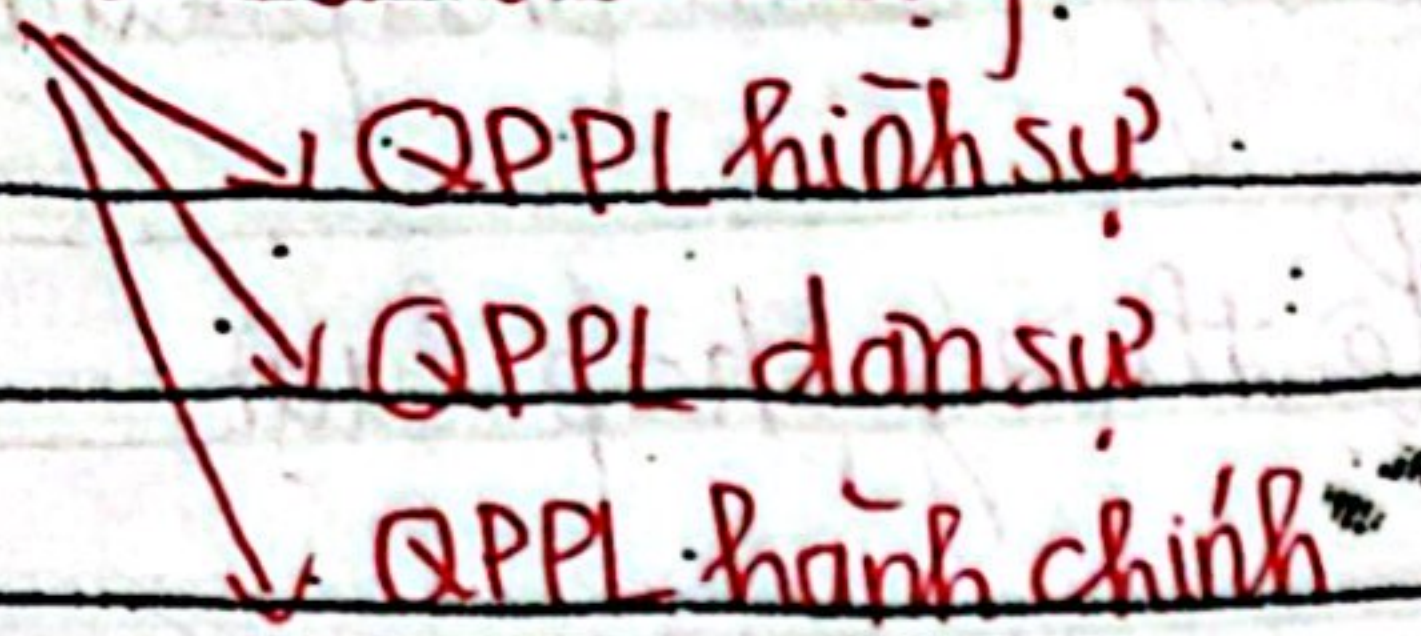 QPPL hình sự
QPPL dân sự
QPPL hành chính